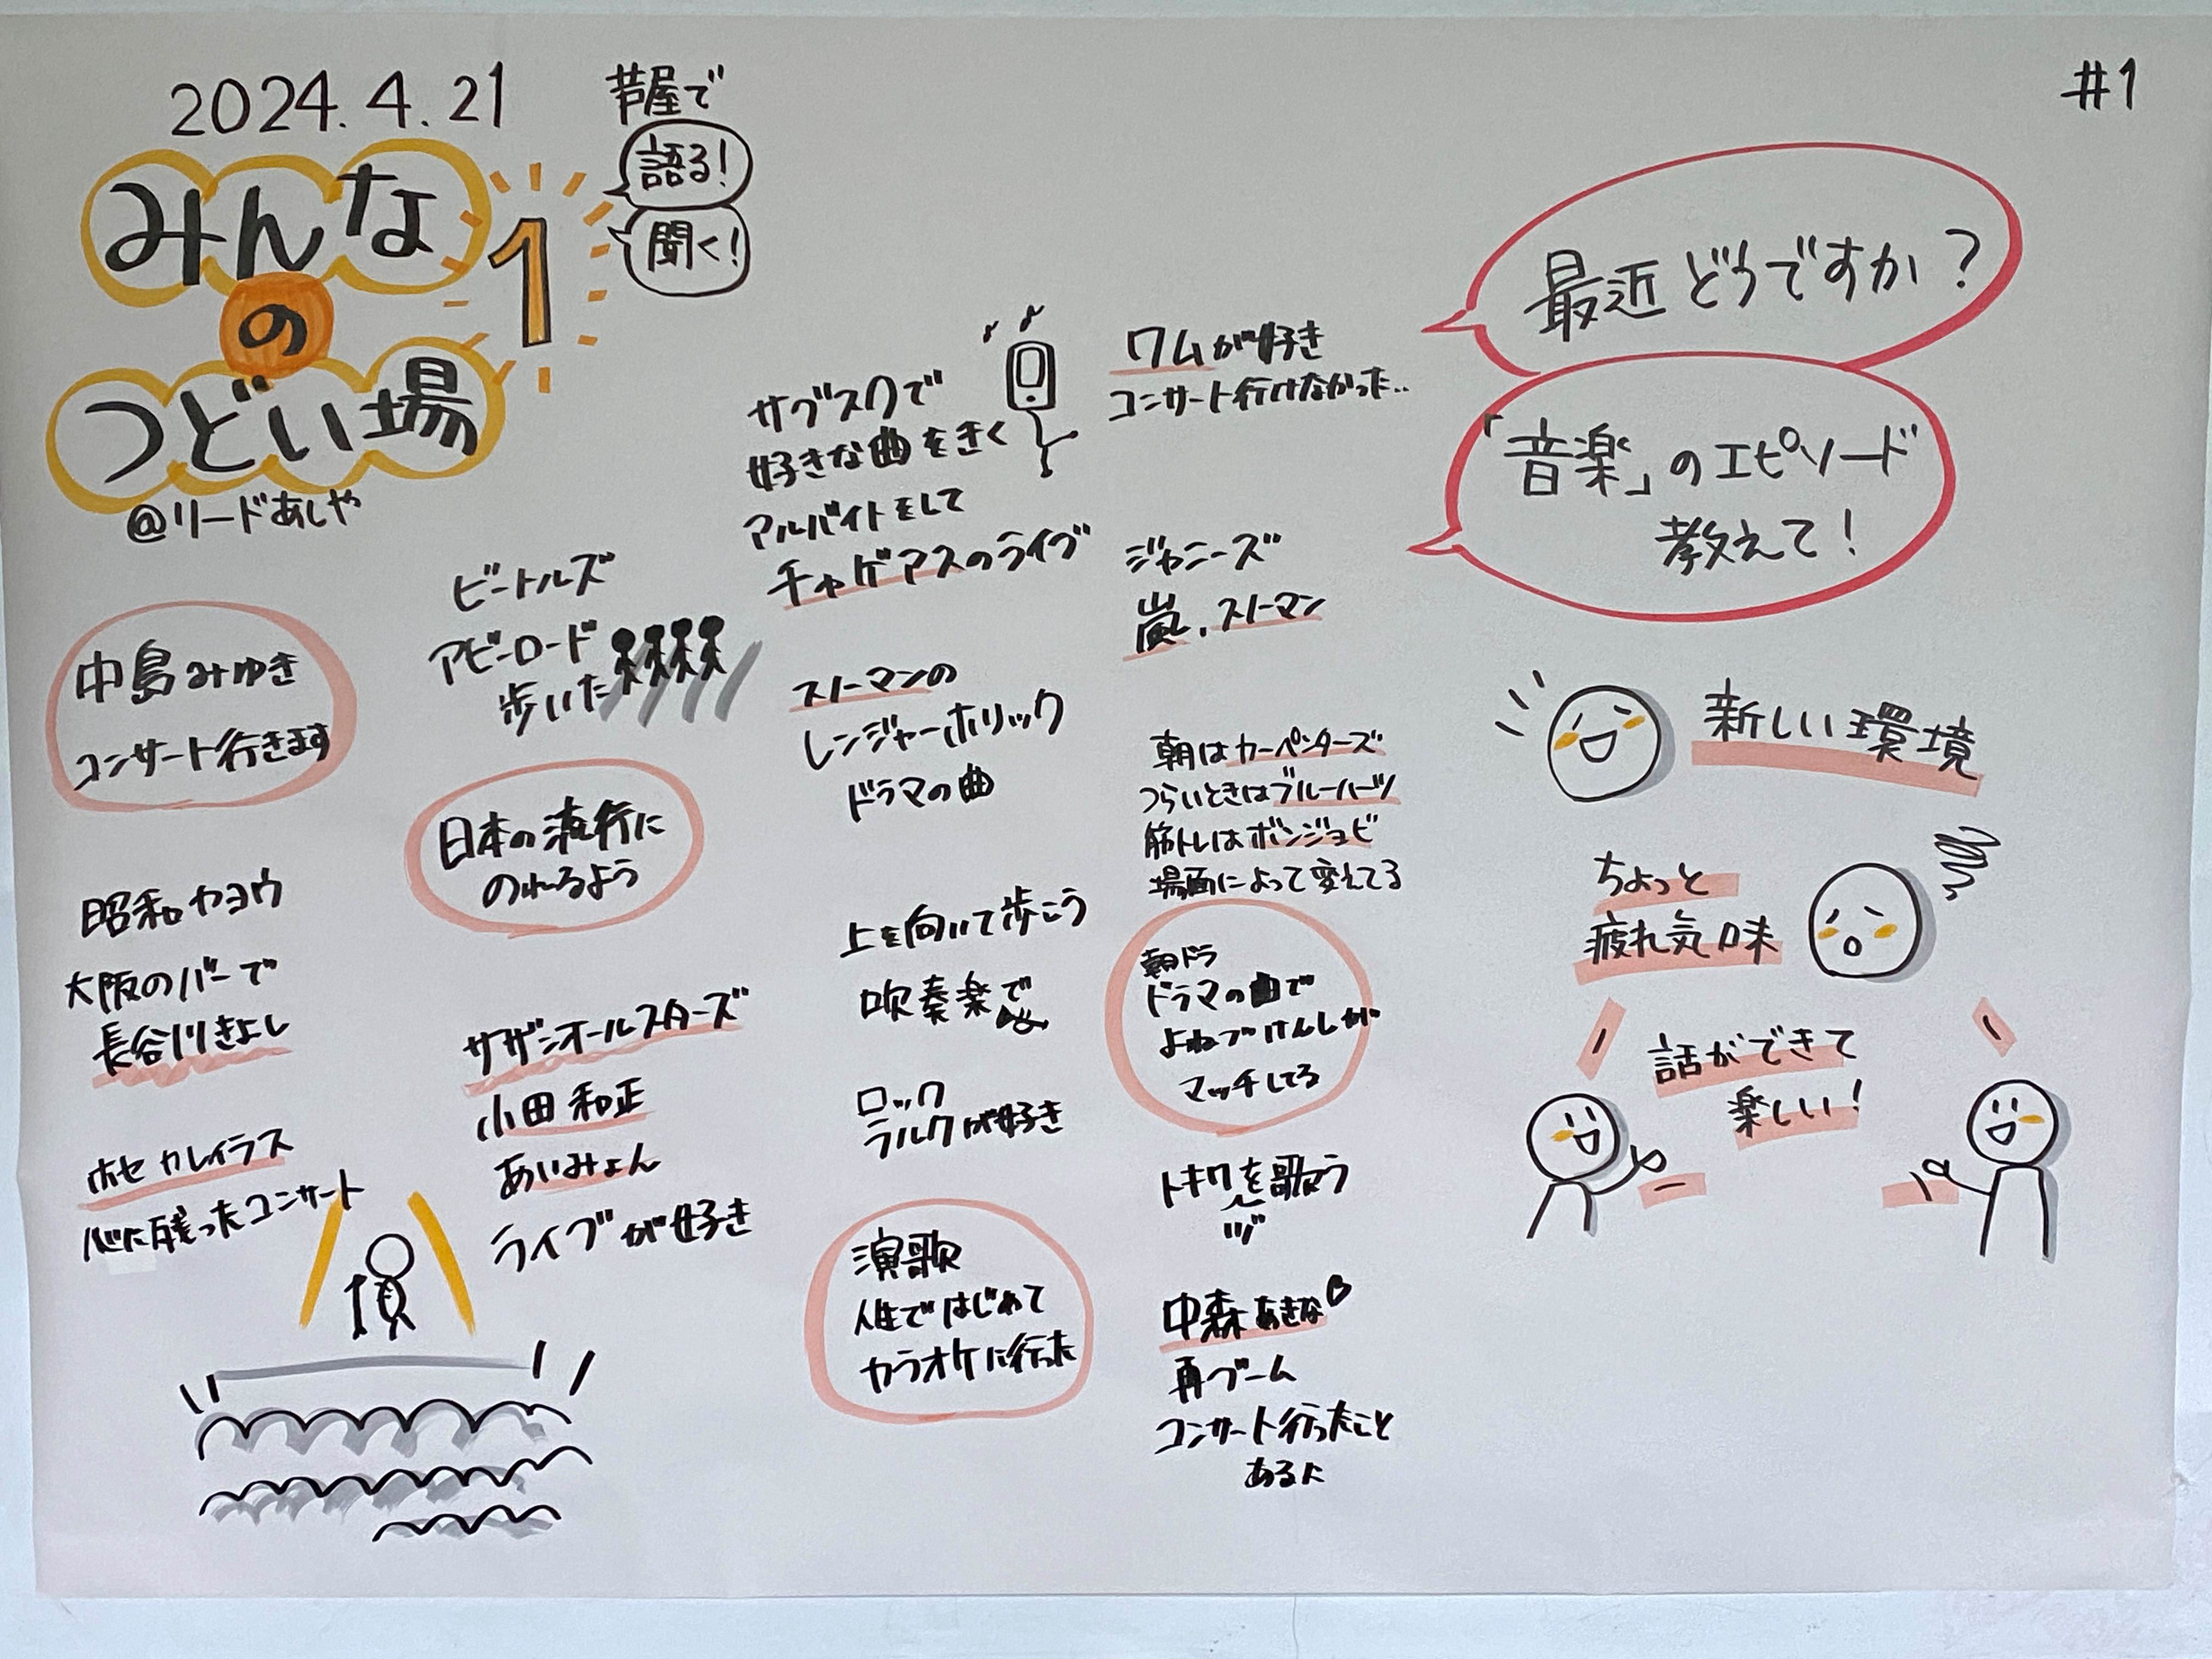 2024.4.21
芦屋で
語る!
聞く!
みんな
の
つどい場
1
@リードあしや
#1
最近どうですか?
「音楽」のエピソード
教えて!
中島みゆき
コンサート行きます
昭和カヨウ
大阪のバーで
長谷川きよし
ホセカレイラス
心に残ったコンサート
ビートルズ
アビーロード
歩いた
日本の流行に
のれるよう
サザンオールスターズ
小田和正
あいみょん
ライブが好き
サブスクで
好きな曲をきく
アルバイトをして
チャゲアスのライブ
スノーマンの
レンジャーホリック
ドラマの曲
上を向いて歩こう
吹奏楽で
ロック
ラルクが好き
演歌
人生ではじめて
カラオケに行った
ワムが好き
コンサート行けなかった..
ジャニーズ
嵐、スノーマン
朝はカーペンターズ
つらいときはブルーハーツ
筋トレはボンジョビ
場面によって変えてる
朝ドラ
ドラマの曲で
よねづけんしが
マッチしてる
トキワを歌う
中森あきな
再ブーム
コンサート行ったこと
新しい環境
ちょっと
疲れ気味
話ができて
楽しい!